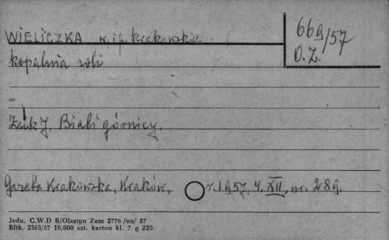 WIELICZKA w. i p. krakowskie
669/57
O.Z.
kopalnia soli
Żak J. Biali górnicy.
Gazeta Krakowska, Kraków, r. 1957, 4. XII, nr. 289.
Jedn. C.W.D B/Olsztyn Zam 2776/on/ 57
Bltk. 2563/57 10.000 szt. karton kl. 7 g 220.